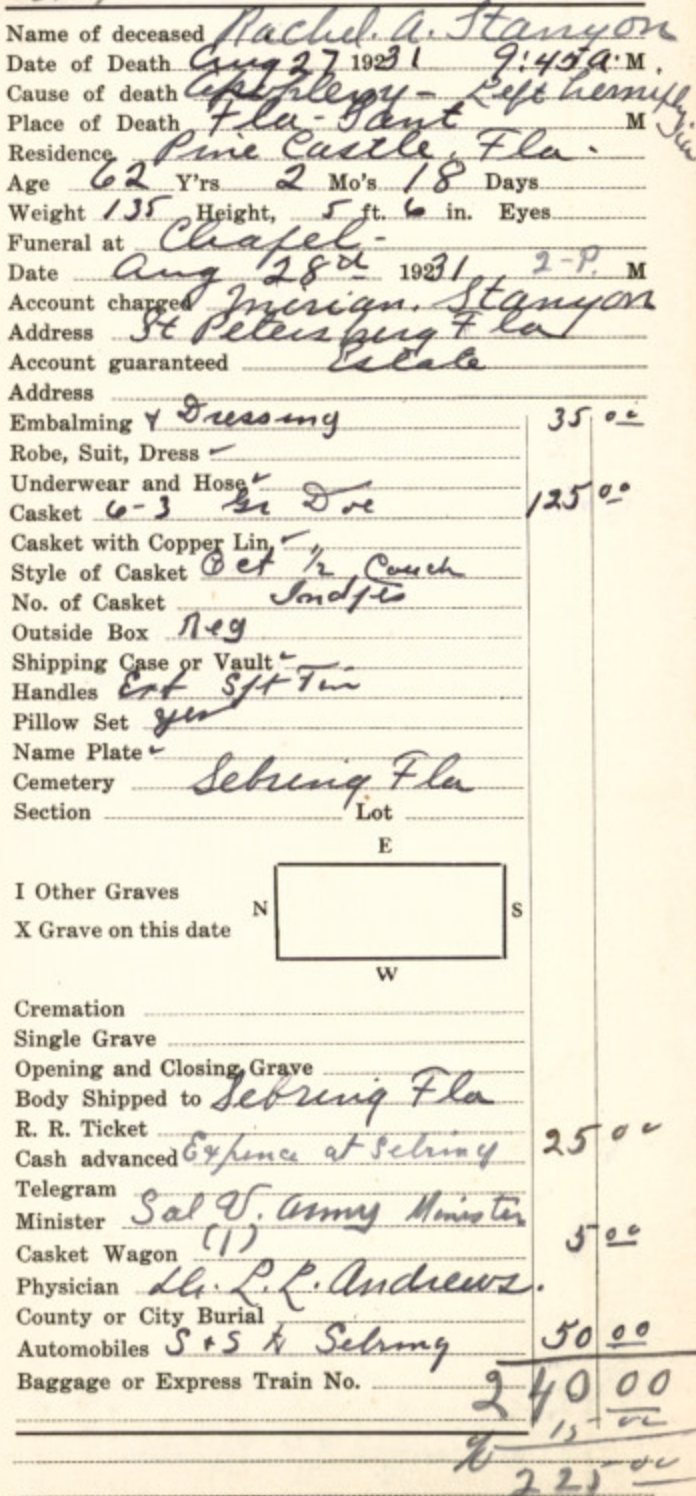 Name of deceased Rachel. A. Stanyon
Date of Death Aug 27 19231 9:45 A. M.
Cause of death Apoplexy - Left hemiplegia
Place of Death Fla - Sant M
Residence Pine Castle, Fla.
Age 62 Y'rs 2 Mo's 18 Days
Weight 135 Height, 5 ft. 6 in. Eyes
Funeral at Chapel -
Date Aug 28d 19231 2-P. M
Account charged Stanyon
Address St Petersburg Fla
Account guaranteed Estate
Address
Embalming & Dressing 35 00
Robe, Suit, Dress
Underwear and Hose
Casket 6-3 Gr Doe 125 00
Casket with Copper Lin.
Style of Casket Oct 1/2 Couch
No. of Casket
Outside Box Reg
Shipping Case or Vault
Handles Ext
Pillow Set yes
Name Plate
Cemetery Sebring Fla
Section Lot
E
I Other Graves
N S
X Grave on this date
W
Cremation
Single Grave
Opening and Closing Grave
Body Shipped to Sebring Fla
R. R. Ticket
Cash advanced Expence at Sebring 25 00
Telegram
Minister Sal V. Army Minister
(1) 5 00
Casket Wagon
Physician Dr. L. L. Andrews.
County or City Burial
Automobiles S & S to Sebring 50 00
Baggage or Express Train No. 240 00
15 00
225 00